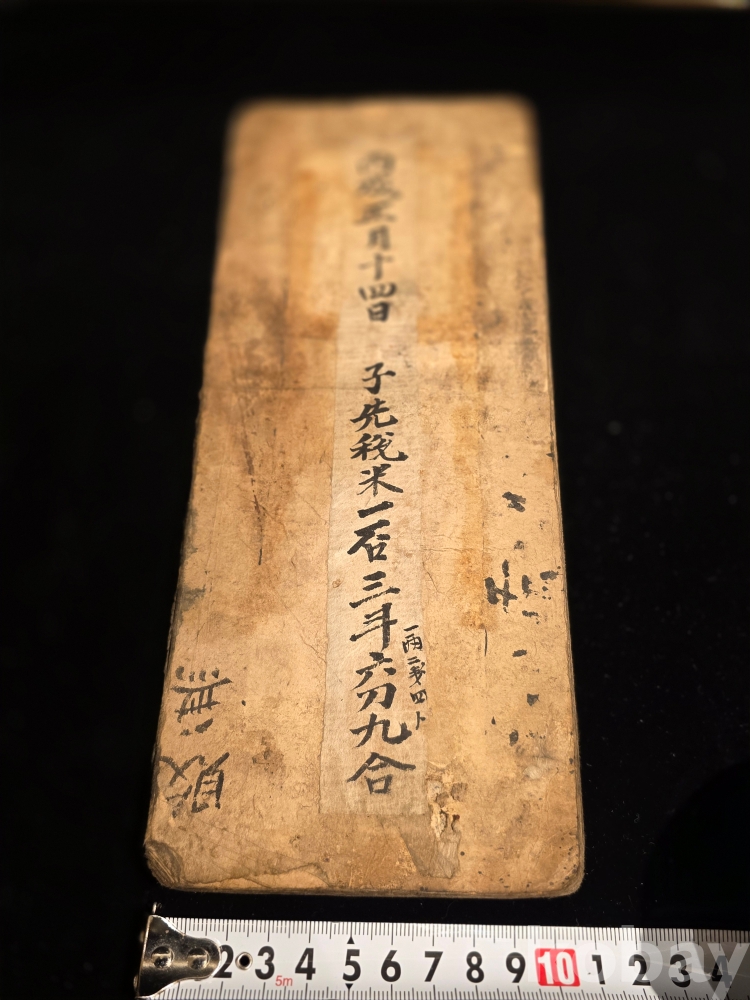 丙戌三月十四日 子先稅米一石三斗六刀九合
一両二戔四卜
無
2 3 4 5 6 7 8 9 10 1 2 3 4
5m